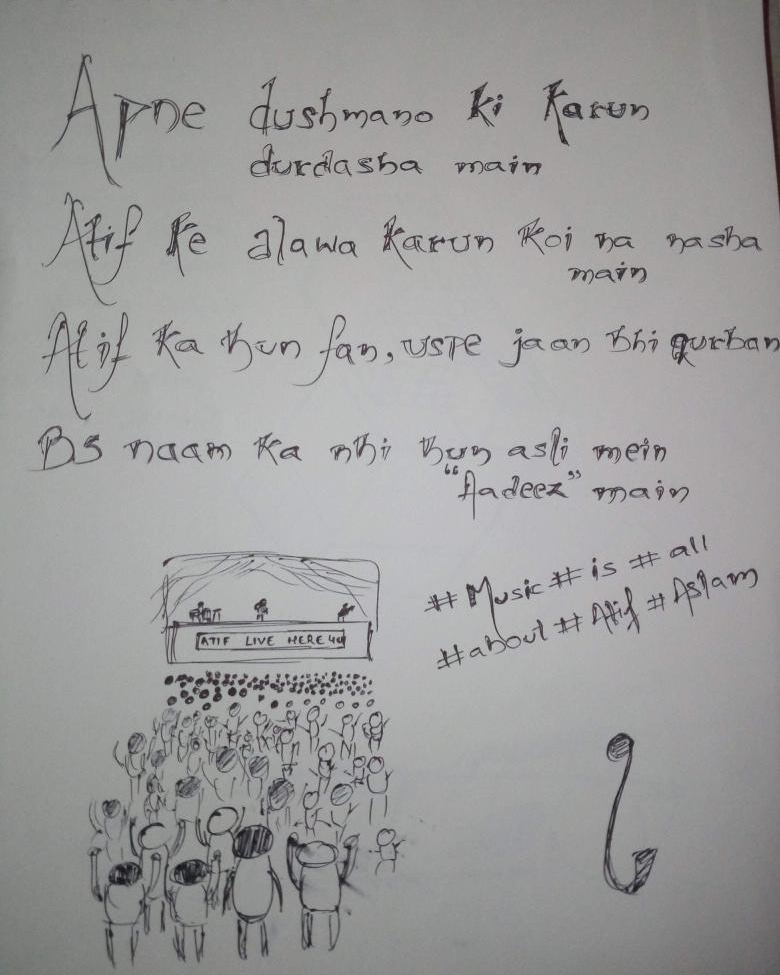 Apne dushmano ki karun
durdasha main
Atif ke alawa karun koi na nasha
main
Atif ka hun fan, uspe jaan bhi qurban
Bs naam ka nhi hun asli mein
"Aadeez" main
#Music#is#all
#about#Atif#Aslam
ATIF LIVE HERE 4U